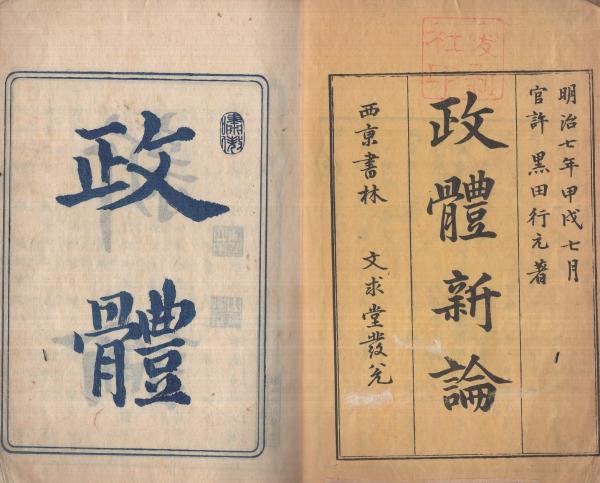 明治七年甲戌七月
官許 黒田行元著
政體新論
西京書林 文求堂發兌
政
體